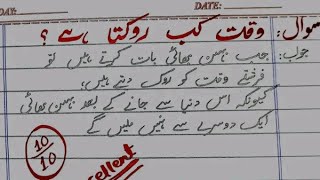 DAY: DATE:
سوال: وقت کب روکتا ہے ؟
جوب: جب بہن بھائی بات کرتے ہیں تو
فرشتے وقت کو روک دیتے ہیں،
کیونکہ اس دنیا سے جانے کے بعد بہن بھائی
ایک دوسرے سے نہیں ملیں گے
10
10
Excellent